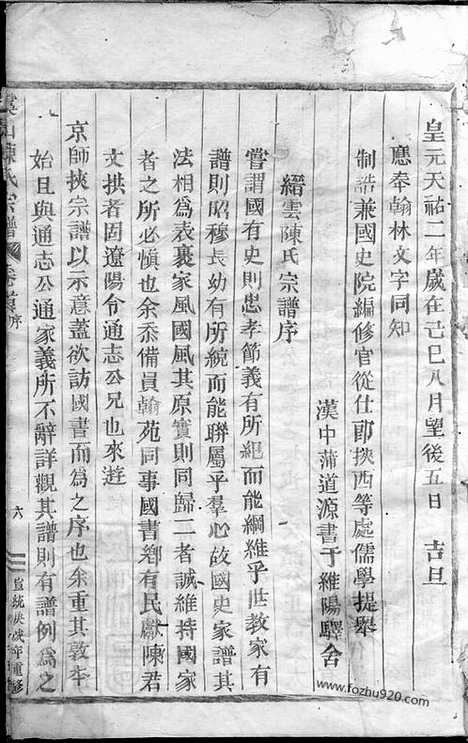 皇元天祐二年歲在己巳八月望後五日　吉旦
應奉翰林文字同知
制誥兼國史院編修官從仕郎挾西等處儒學提舉
漢中蒲道源書于維陽驛舍
縉雲陳氏宗譜序
嘗謂國有史則忠孝節義有所紀而能綱維乎世教家有
譜則昭穆長幼有所統而能聯屬乎羣心故國史家譜其
法相爲表裏家風國風其原實則同歸二者誠維持國家
者之所必慎也余忝備員翰苑同事國書鄉有民獻陳君
文拱者固遼陽令通志公兄也來遊
京師挾宗譜以示意蓋欲訪國書而爲之序也余重其敦本
始且與通志公通家義所不辭詳觀其譜則有譜例爲之
山陳氏宗譜 卷首 序
六
宣統 重修
www.fozhu920.com